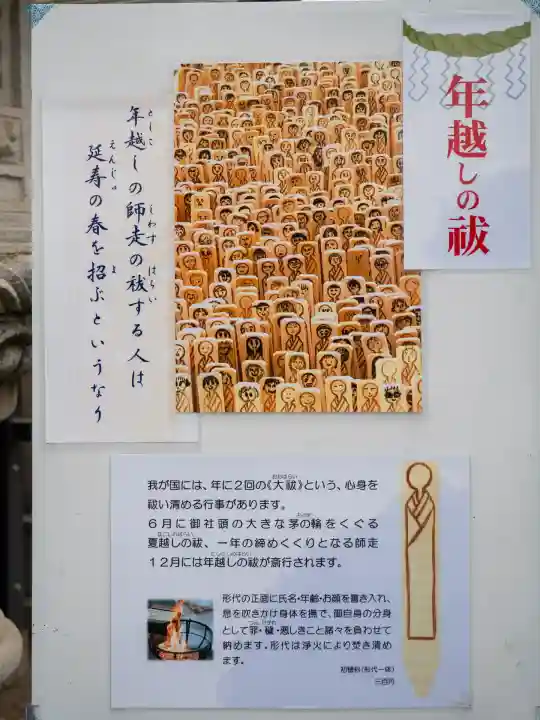 年越しの祓
年越しの師走の祓する人は
延寿の春を招ぶというなり
我が国には、年に２回の《大祓》という、心身を
祓い清める行事があります。
６月に御社頭の大きな茅の輪をくぐる
夏越しの祓、一年の締めくくりとなる師走
１２月には年越しの祓が斎行されます。
形代の正面に氏名・年齢・お顔を書き入れ、
息を吹きかけ身体を撫で、御自身の分身
として罪・穢・悪しきこと諸々を負わせて
納めます。形代は浄火により焚き清め
ます。
初穂料(形代一体)
三百円